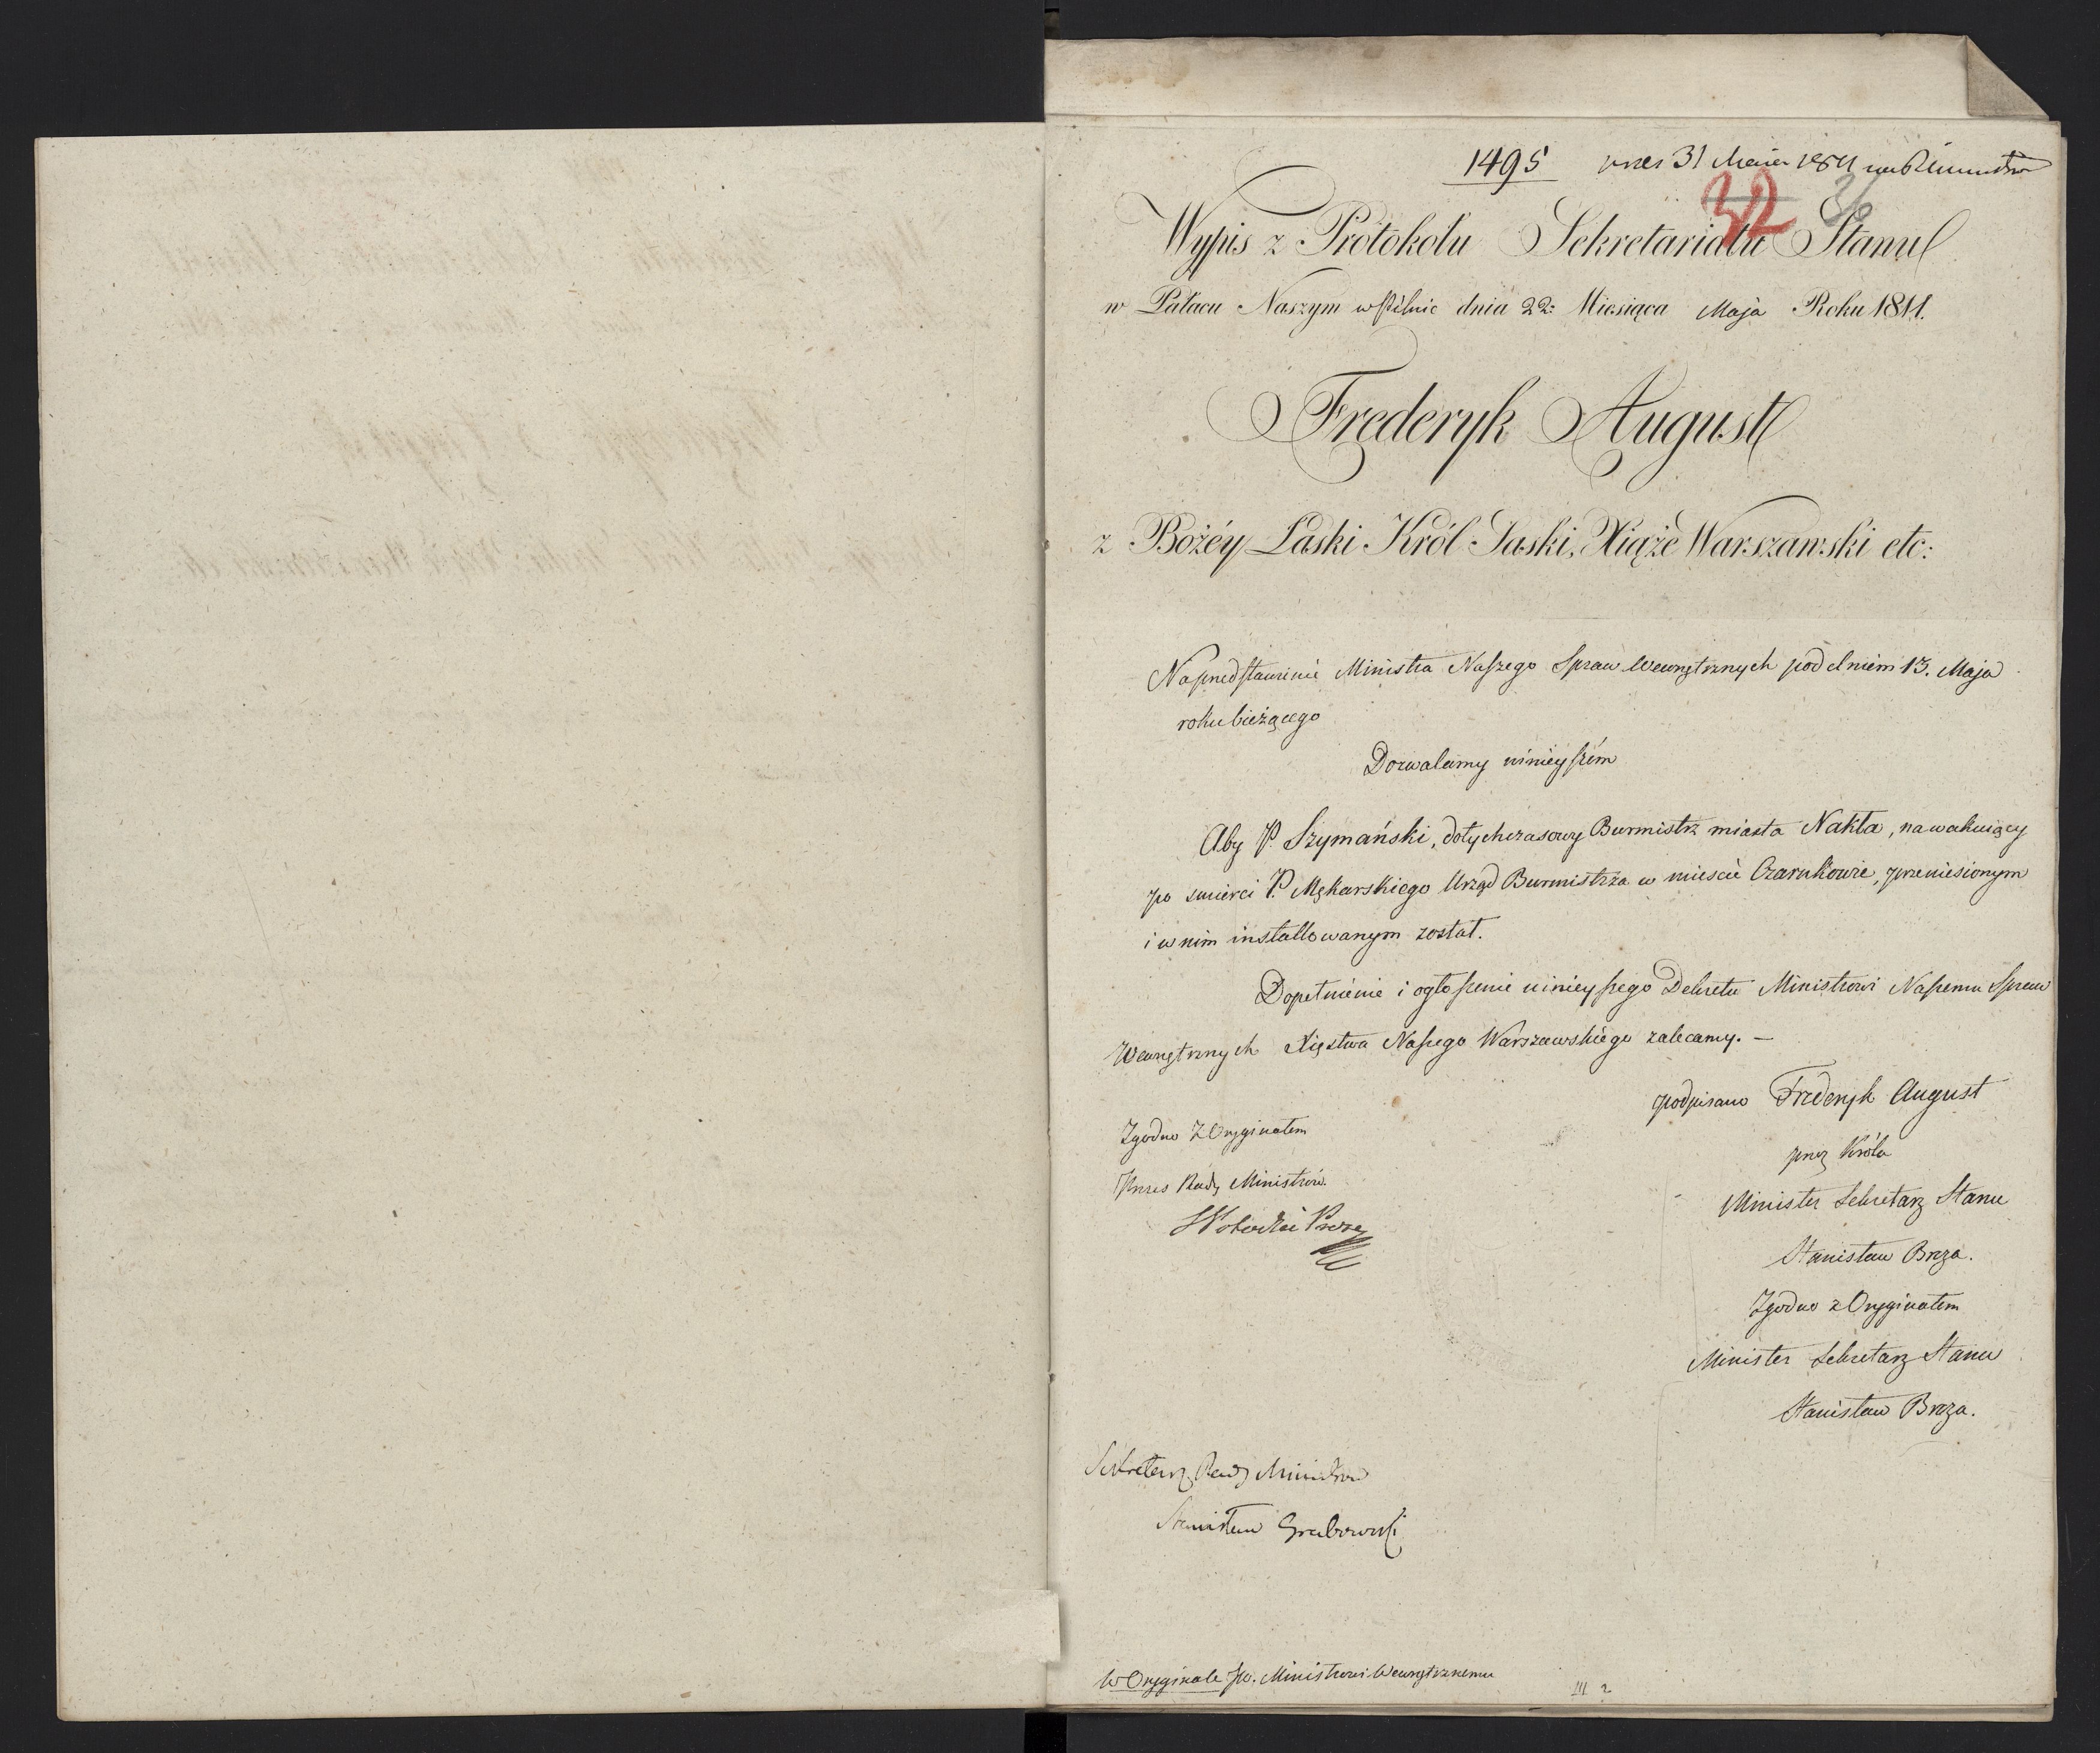 1495 31 Maja 1811
32
Wypis z Protokołu Sekretariatu Stanu
w Pałacu Naszym w Pilnic dnia 22: Miesiąca Maja Roku 1811.
Frederyk August
z Bożéy Łaski Król Saski, Xiąże Warszawski etc:
Na przedstawienie Ministra Naszego Spraw Wewnętrznych pod dniem 13. Maja
roku bieżącego
Dozwalamy ninieyszém
Aby P. Szymański, dotychczasowy Burmistrz miasta Nakła, na wakuiący
po smierci P. Mękarskiego Urząd Burmistrza w mieście Czarnkowie, przeniesionym
i w nim installowanym został.
Dopełnienie i ogłoszenie ninieyszego Dekretu Ministrowi Naszemu Spraw
Wewnętrznych Xięstwa Naszego Warszawskiego zalecamy. —
podpisano Frederyk August
przez Króla
Minister Sekretarz Stanu
Stanisław Breza.
Zgodno z Oryginałem
Minister Sekretarz Stanu
Stanisław Breza.
Zgodno z Oryginałem
Prezes Rady Ministrów
Sekretarz Rady Ministrów
Stanisław Grabowski
W Oryginale Jw. Ministrowi Wewnętrznemu